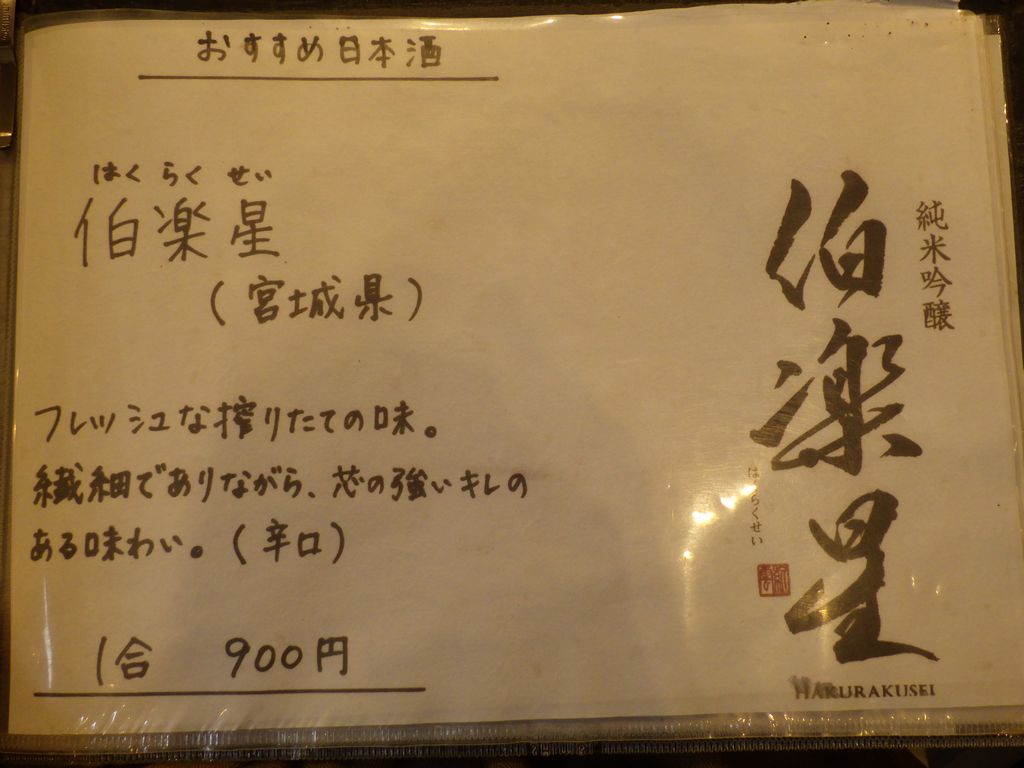 おすすめ日本酒
はくらくせい
伯楽星
(宮城県)
フレッシュな搾りたての味。
繊細でありながら、芯の強いキレの
ある味わい。(辛口)
1合 900円
純米吟醸
伯楽星
はくらくせい
HAKURAKUSEI